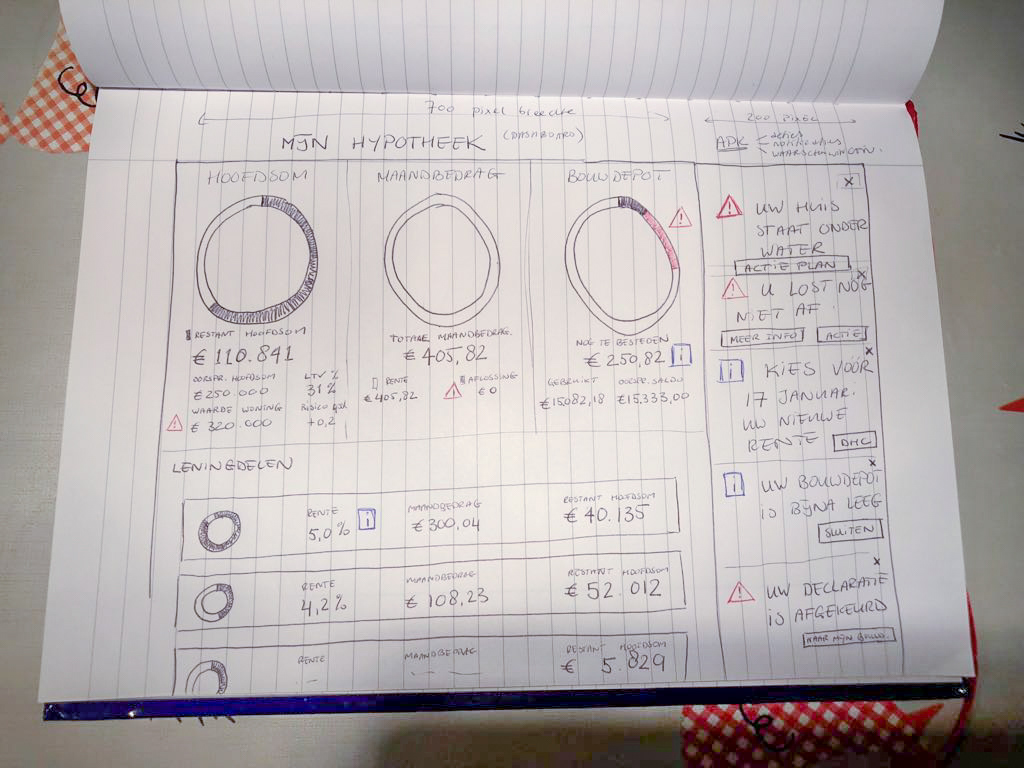 700 pixel breedte
200 PIXEL
MIJN HYPOTHEEK (DASHBOARD)
APK
ACTIES
NOTIFICATIES
WAARSCHUWINGEN.
HOOFDSOM
RESTANT HOOFDSOM
€ 110.841
OORSPR. HOOFDSOM
€ 250.000
LTV %
31 %
WAARDE WONING
€ 320.000
+0,2
MAANDBEDRAG
TOTALE MAANDBEDRAG.
€ 405,82
RENTE
€ 405,82
AFLOSSING
€ 0
BOUWDEPOT
NOG TE BESTEDEN
€ 250,82 i
GEBRUIKT
€ 15.082,18
OORSPR. SALDO
€ 15.333,00
LENINGDELEN
RENTE
5,0 % i
MAANDBEDRAG
€ 300,04
RESTANT HOOFDSOM
€ 40.135
RENTE
4,2 %
MAANDBEDRAG
€ 108,23
RESTANT HOOFDSOM
€ 52.012
RENTE
MAANDBEDRAG
RESTANT HOOFDSOM
€ 5.829
X
! UW HUIS
STAAT ONDER
WATER
ACTIE PLAN
X
! U LOST NOG
NIET AF.
MEER INFO ACTIE
X
i KIES VÓÓR
17 JANUARI.
UW NIEUWE
RENTE DMC
X
i UW BOUWDEPOT
IS BIJNA LEEG
SLUITEN
X
! UW DECLARATIE
IS AFGEKEURD
NAAR MIJN BOUWD.